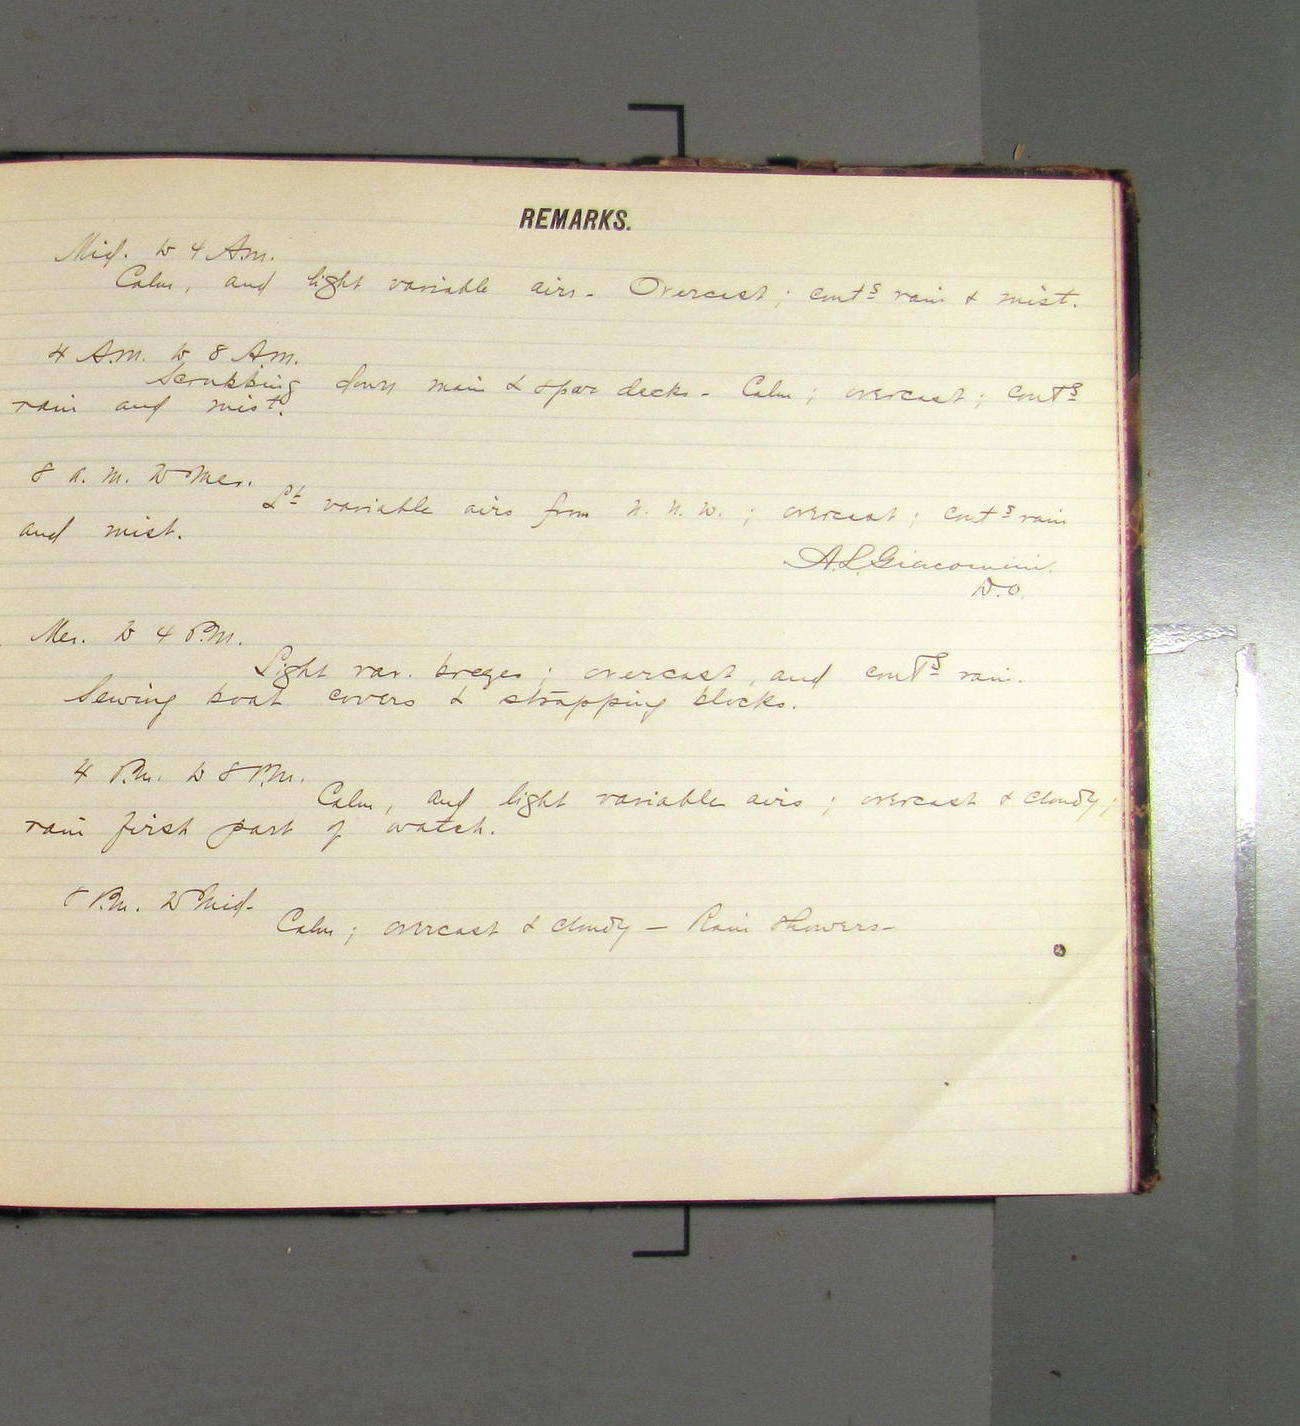 REMARKS.
Mid. to 4 A.m.
Calm, and light variable airs. Overcast; conts rain & mist.
4 A.M. to 8 A.m.
Scrubbing down main & spar decks. Calm; overcast; conts
rain and mist.
8 a.m. to Mer.
Lt variable airs from N. N. W.; overcast; conts rain
and mist.
A. L. Giacomini.
D.O.
Mer. to 4 P.m.
Light var. breezes; overcast, and conts rain.
Sewing boat covers & strapping blocks.
4 P.m. to 8 P.m.
Calm, and light variable airs; overcast & cloudy;
rain first part of watch.
8 P.m. to Mid.
Calm; overcast & cloudy — Rain showers —